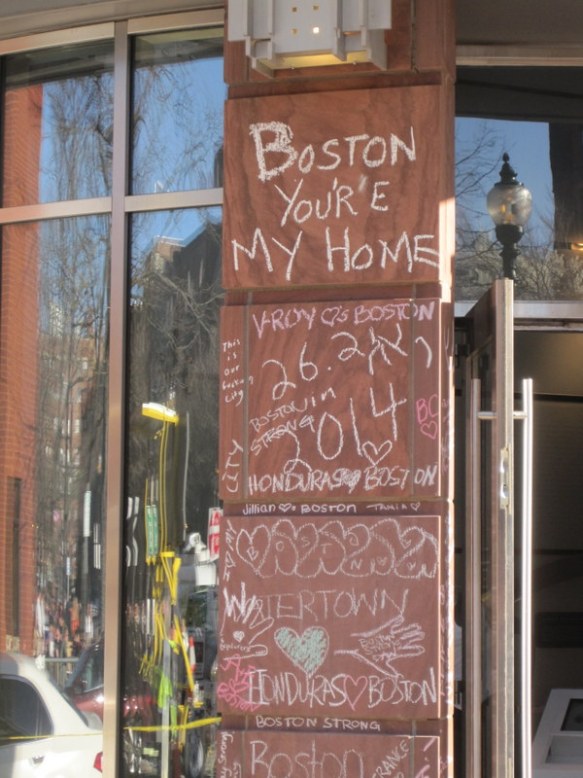 BOSTON
YOU'R'E
MY HOME
V-ROY ♡s BOSTON
This
is
our
city
26.2
BOSTON
STRONG
in
2014
BC
CITY
HONDURAS ♡ BOSTON
Jillian ♡s BOSTON TANIA ♡
WATERTOWN
HONDURAS ♡ BOSTON
BOSTON STRONG
BOSTON